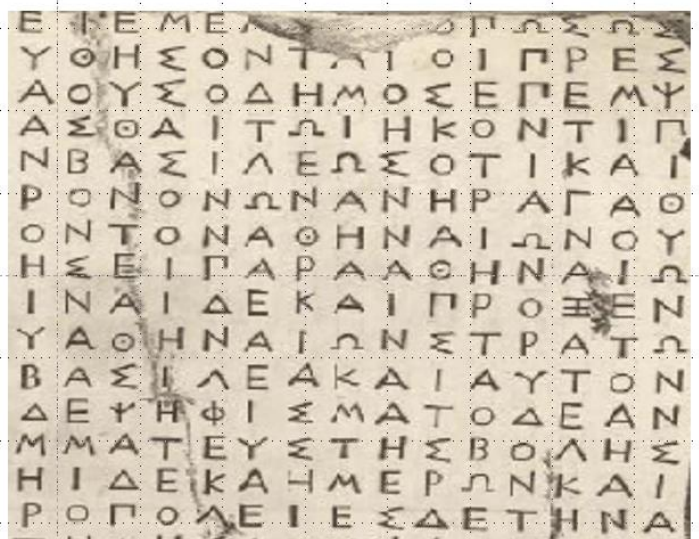 ΕΙΕΜΕ ΟΠΩΣΩΣ
ΥΘΗΣΟΝΤΑΙΟΙΠΡΕΣ
ΑΟΥΣΟΔΗΜΟΣΕΠΕΜΨ
ΑΣΘΑΙΤΩΙΗΚΟΝΤΙΠ
ΝΒΑΣΙΛΕΩΣΟΤΙΚΑΙ
ΡΟΝΟΝΩΝΑΝΗΡΑΓΑΘ
ΟΝΤΟΝΑΘΗΝΑΙΩΝΟΥ
ΗΣΕΙΓΑΡΑΑΘΗΝΑΙΩ
ΙΝΑΙΔΕΚΑΙΠΡΟΞΕΝ
ΥΑΘΗΝΑΙΩΝΣΤΡΑΤΩ
ΒΑΣΙΛΕΑΚΑΙΑΥΤΟΝ
ΔΕΨΗΦΙΣΜΑΤΟΔΕΑΝ
ΜΜΑΤΕΥΣΤΗΣΒΟΛΗΣ
ΗΙΔΕΚΑΗΜΕΡΩΝΚΑΙ
ΡΟΠΟΛΕΙΕΣΔΕΤΗΝΑ